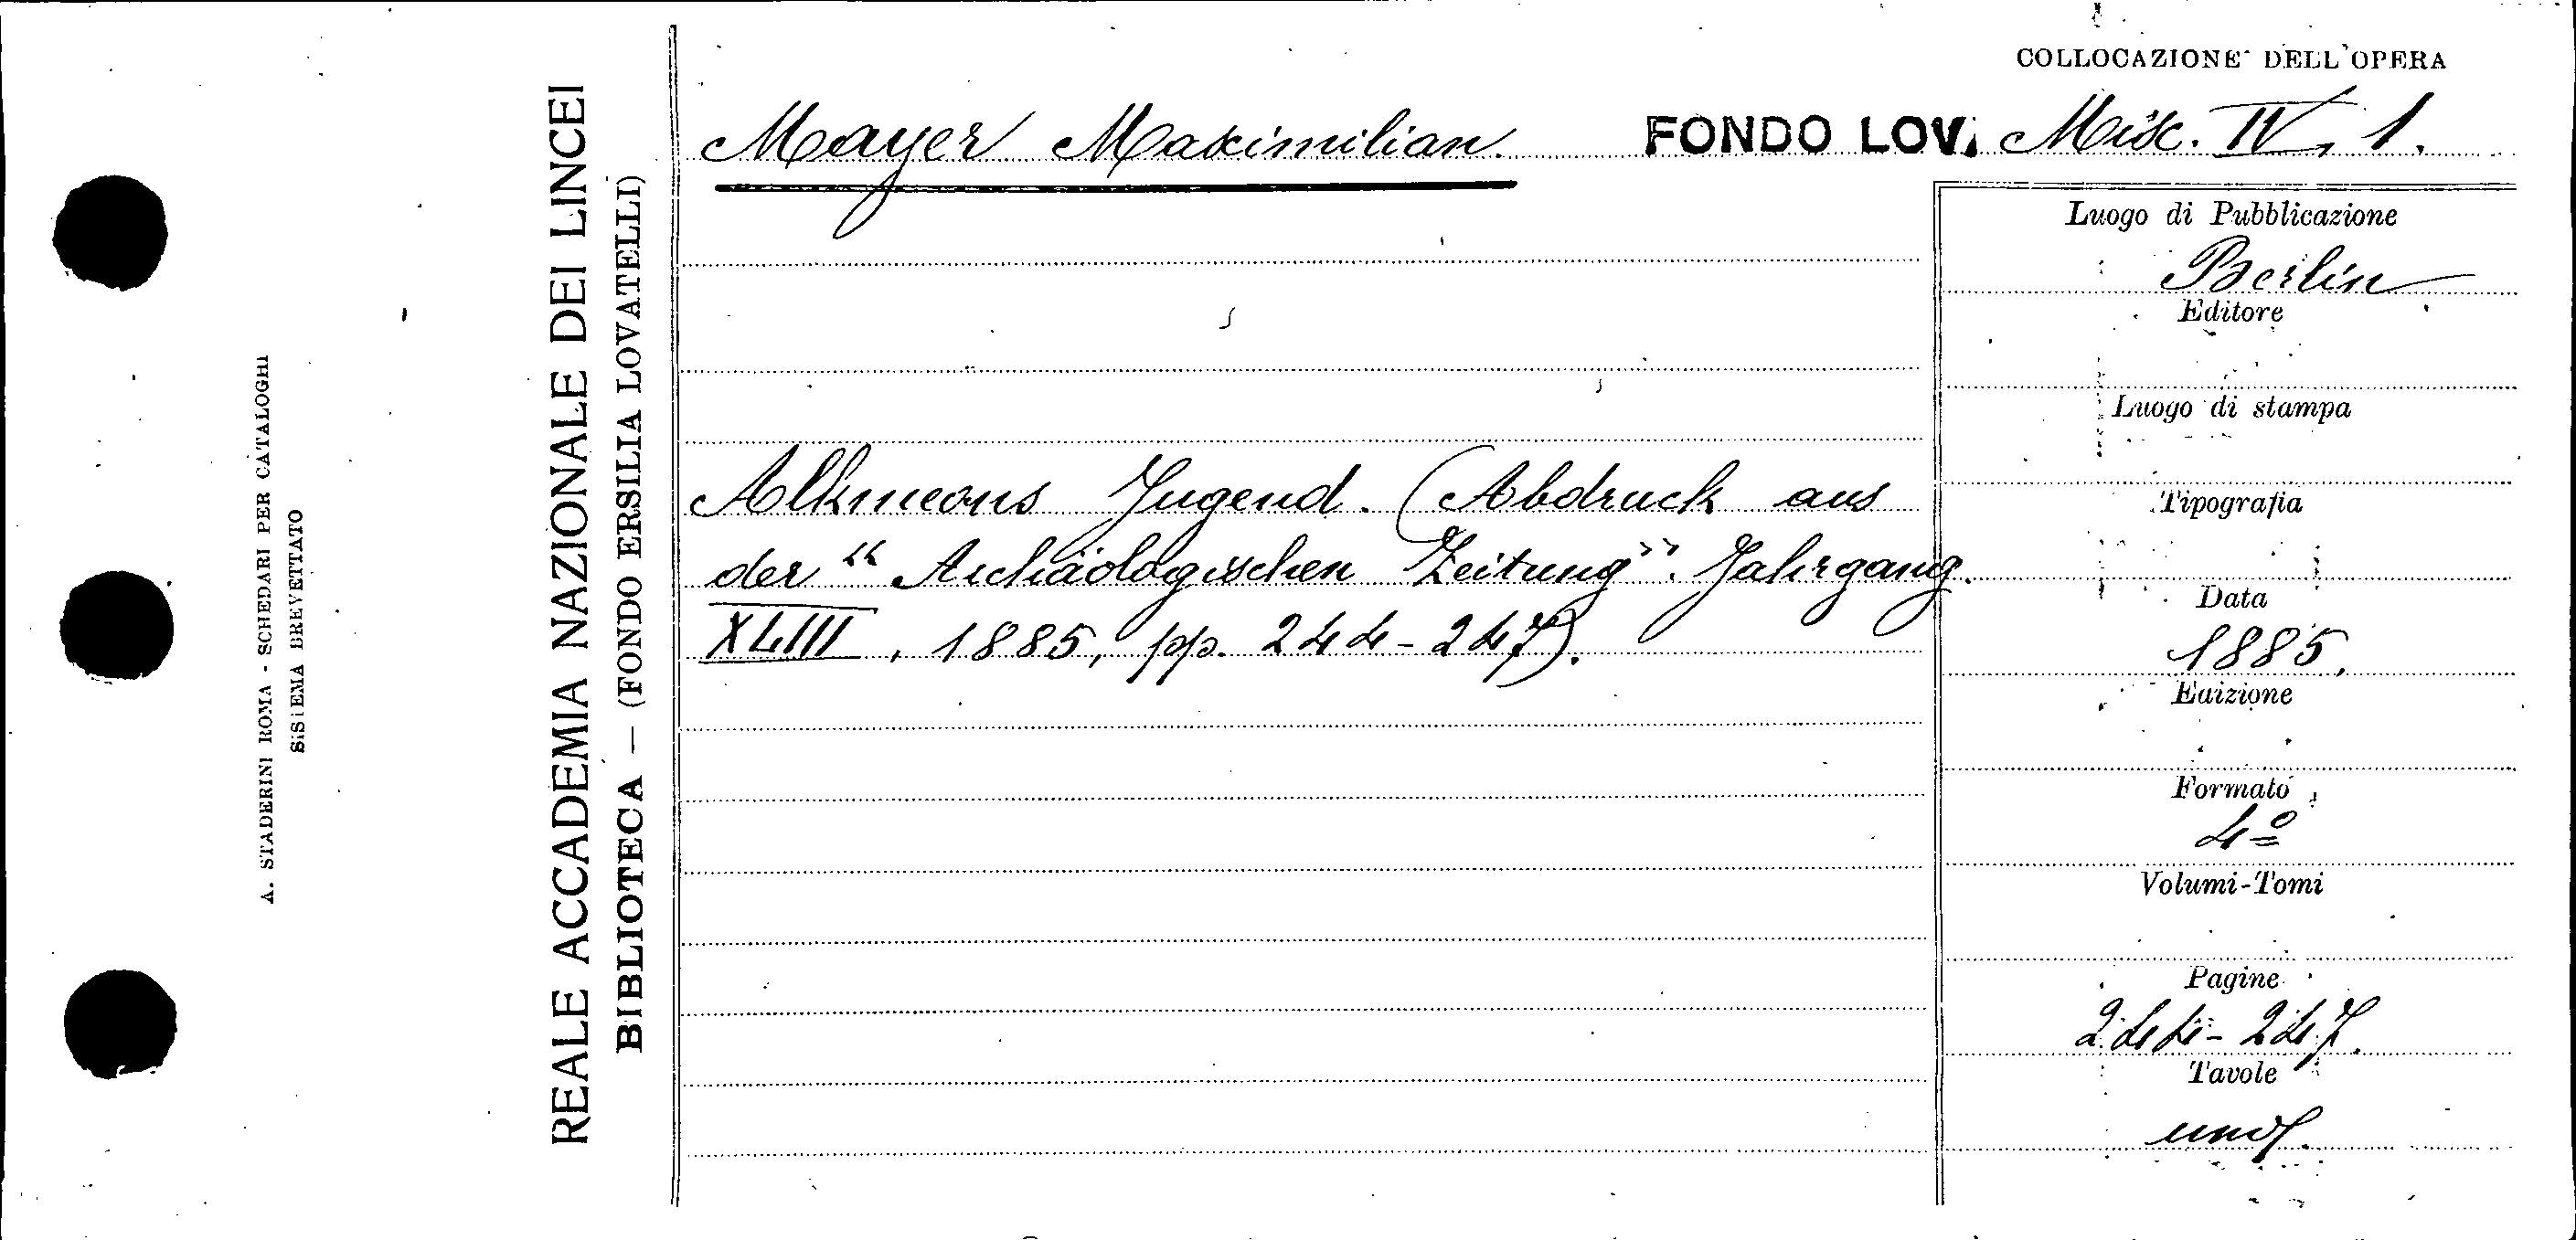 COLLOCAZIONE DELL'OPERA
Mayer Maximilian. FONDO LOV. Misc. IV, 1.
Luogo di Pubblicazione
Berlin
Editore
Luogo di stampa
Alkmeons Jugend. (Abdruck aus
Tipografia
der "Archäologischen Zeitung". Jahrgang.
Data
XLIII, 1885, pp. 244-247).
1885.
Edizione
Formato
4º
Volumi-Tomi
Pagine
244-247.
Tavole
REALE ACCADEMIA NAZIONALE DEI LINCEI
BIBLIOTECA — (FONDO ERSILIA LOVATELLI)
A. STADERINI ROMA - SCHEDARI PER CATALOGHI
SISTEMA BREVETTATO